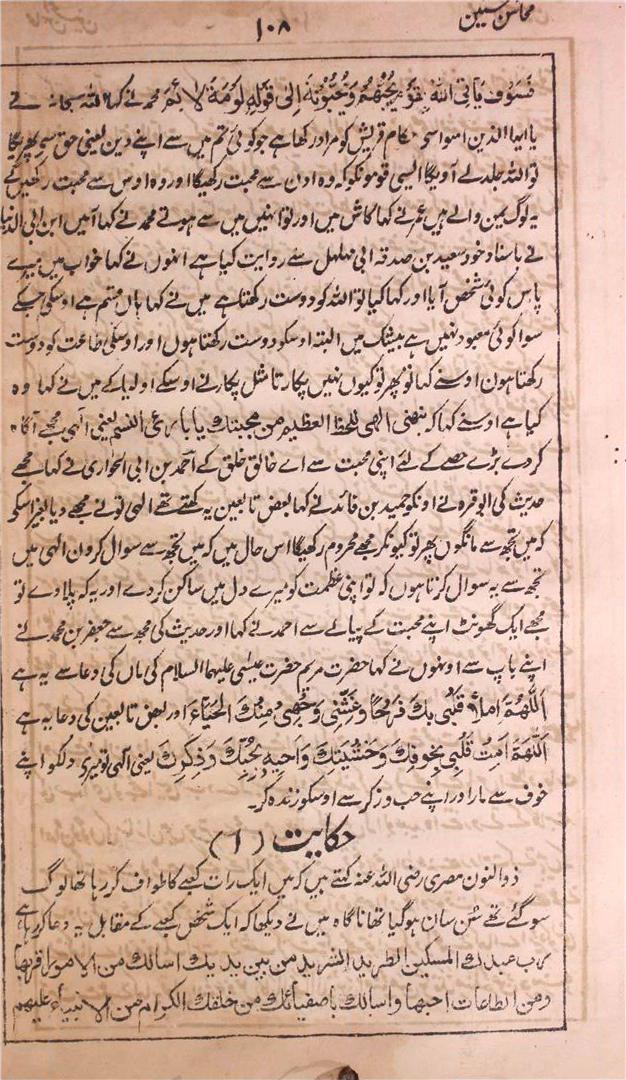 محاسن حسین
۱۰۸
فَسَوْفَ يَأْتِي اللهُ بِقَوْمٍ يُحِبُّهُمْ وَيُحِبُّونَهٗ اِلٰى قَوْلِهٖ لَوْمَةَ لَائِمٍ محمد نے کہا اللہ سبحانہ نے
یا ایہا الذین امنوا سے حکام قریش کو مراد رکھا ہے جو کوئی تم میں سے اپنے دین یعنی حق سے پھریگا
تو اللہ جلد لے آویگا ایسی قومونکو کہ وہ اون سے محبت رکھیگا اور وہ اوس سے محبت رکھیں گے
یہ لوگ یمن والے ہیں عمر نے کہا کاش میں اور تو انہیں میں سے ہوتے محمد نے کہا آمین ابن ابی الدنیا
نے باسناد خود سعید بن صدقہ ابی مہلہل سے روایت کیا ہے انہوں نے کہا خواب میں میرے
پاس کوئی شخص آیا اور کہا کیا تو اللہ کو دوست رکھتا ہے میں نے کہا ہاں قسم ہے اوسکی جسکے
سوا کوئی معبود نہیں ہے بیشک میں البتہ اوسکو دوست رکھتا ہوں اور اوسکی طاعت کو دوست
رکھتا ہون اوسنے کہا تو پھر تو کیوں نہیں پکارتا مثل پکارنے اوسکے اولیا کے میں نے کہا وہ
کیا ہے اوسنے کہا کہ نبھنی الٰهی للحظ العظیم من محبتك یا بارئ النسم یعنی الٰہی مجھے آگاہ
کر دے بڑے حصے کے لئے اپنی محبت سے اے خالق خلق کے احمد بن ابی الحواری نے کہا مجھے
حدیث کی ابو قرہ نے اونکو حمید بن فائد نے کہا بعض تابعین یہ کہتے تھے الٰہی تو نے مجھے دیا بغیر اسکو
کہ میں تجھ سے مانگوں پھر تو کیونکر مجھے محروم رکھیگا اس حال میں کہ میں تجھ سے سوال کرون الٰہی میں
تجھ سے یہ سوال کرتا ہوں کہ تو اپنی عظمت کو میرے دل میں ساکن کر دے اور یہ کہ پلا دے تو
مجھے ایک گھونٹ اپنے محبت کے پیالے سے احمد نے کہا اور حدیث کی مجھ سے جعفر بن محمد نے
اپنے باپ سے اونہوں نے کہا حضرت مریم حضرت عیسٰی علیہما السلام کی ماں کی دعا سے یہ ہے
اَللّٰهُمَّ امْلَأْ قَلْبِي بِكَ فَرَحًا وَغَشِّنِي وَجْهِي مِنْكَ الْحَيَاءَ اور بعض تابعین کی دعا یہ ہے
اَللّٰهُمَّ اَمِتْ قَلْبِي بِخَوْفِكَ وَخَشْيَتِكَ وَاَحْيِهِ بِحُبِّكَ وَذِكْرِكَ یعنی الٰہی تو میری دلکو اپنے
خوف سے مار اور اپنے حب و ذکر سے اوسکو زندہ کر۔
حکایت (۱)
ذوالنون مصری رضی اللہ عنہ کہتے ہیں کہ میں ایک رات کعبے کا طواف کر رہا تھا لوگ
سو گئے تھے سُن سان ہو گیا تھا ناگاہ میں نے دیکھا کہ ایک شخص کعبے کے مقابل یہ دعا کر رہا ہے
رب عبدك المسکین الطرید الشرید من بین یدیك اسالك من الامور اقربها
ومن الطاعات احبها واسالك باصفیائك من خلقك الکرام من الانبیاء علیهم